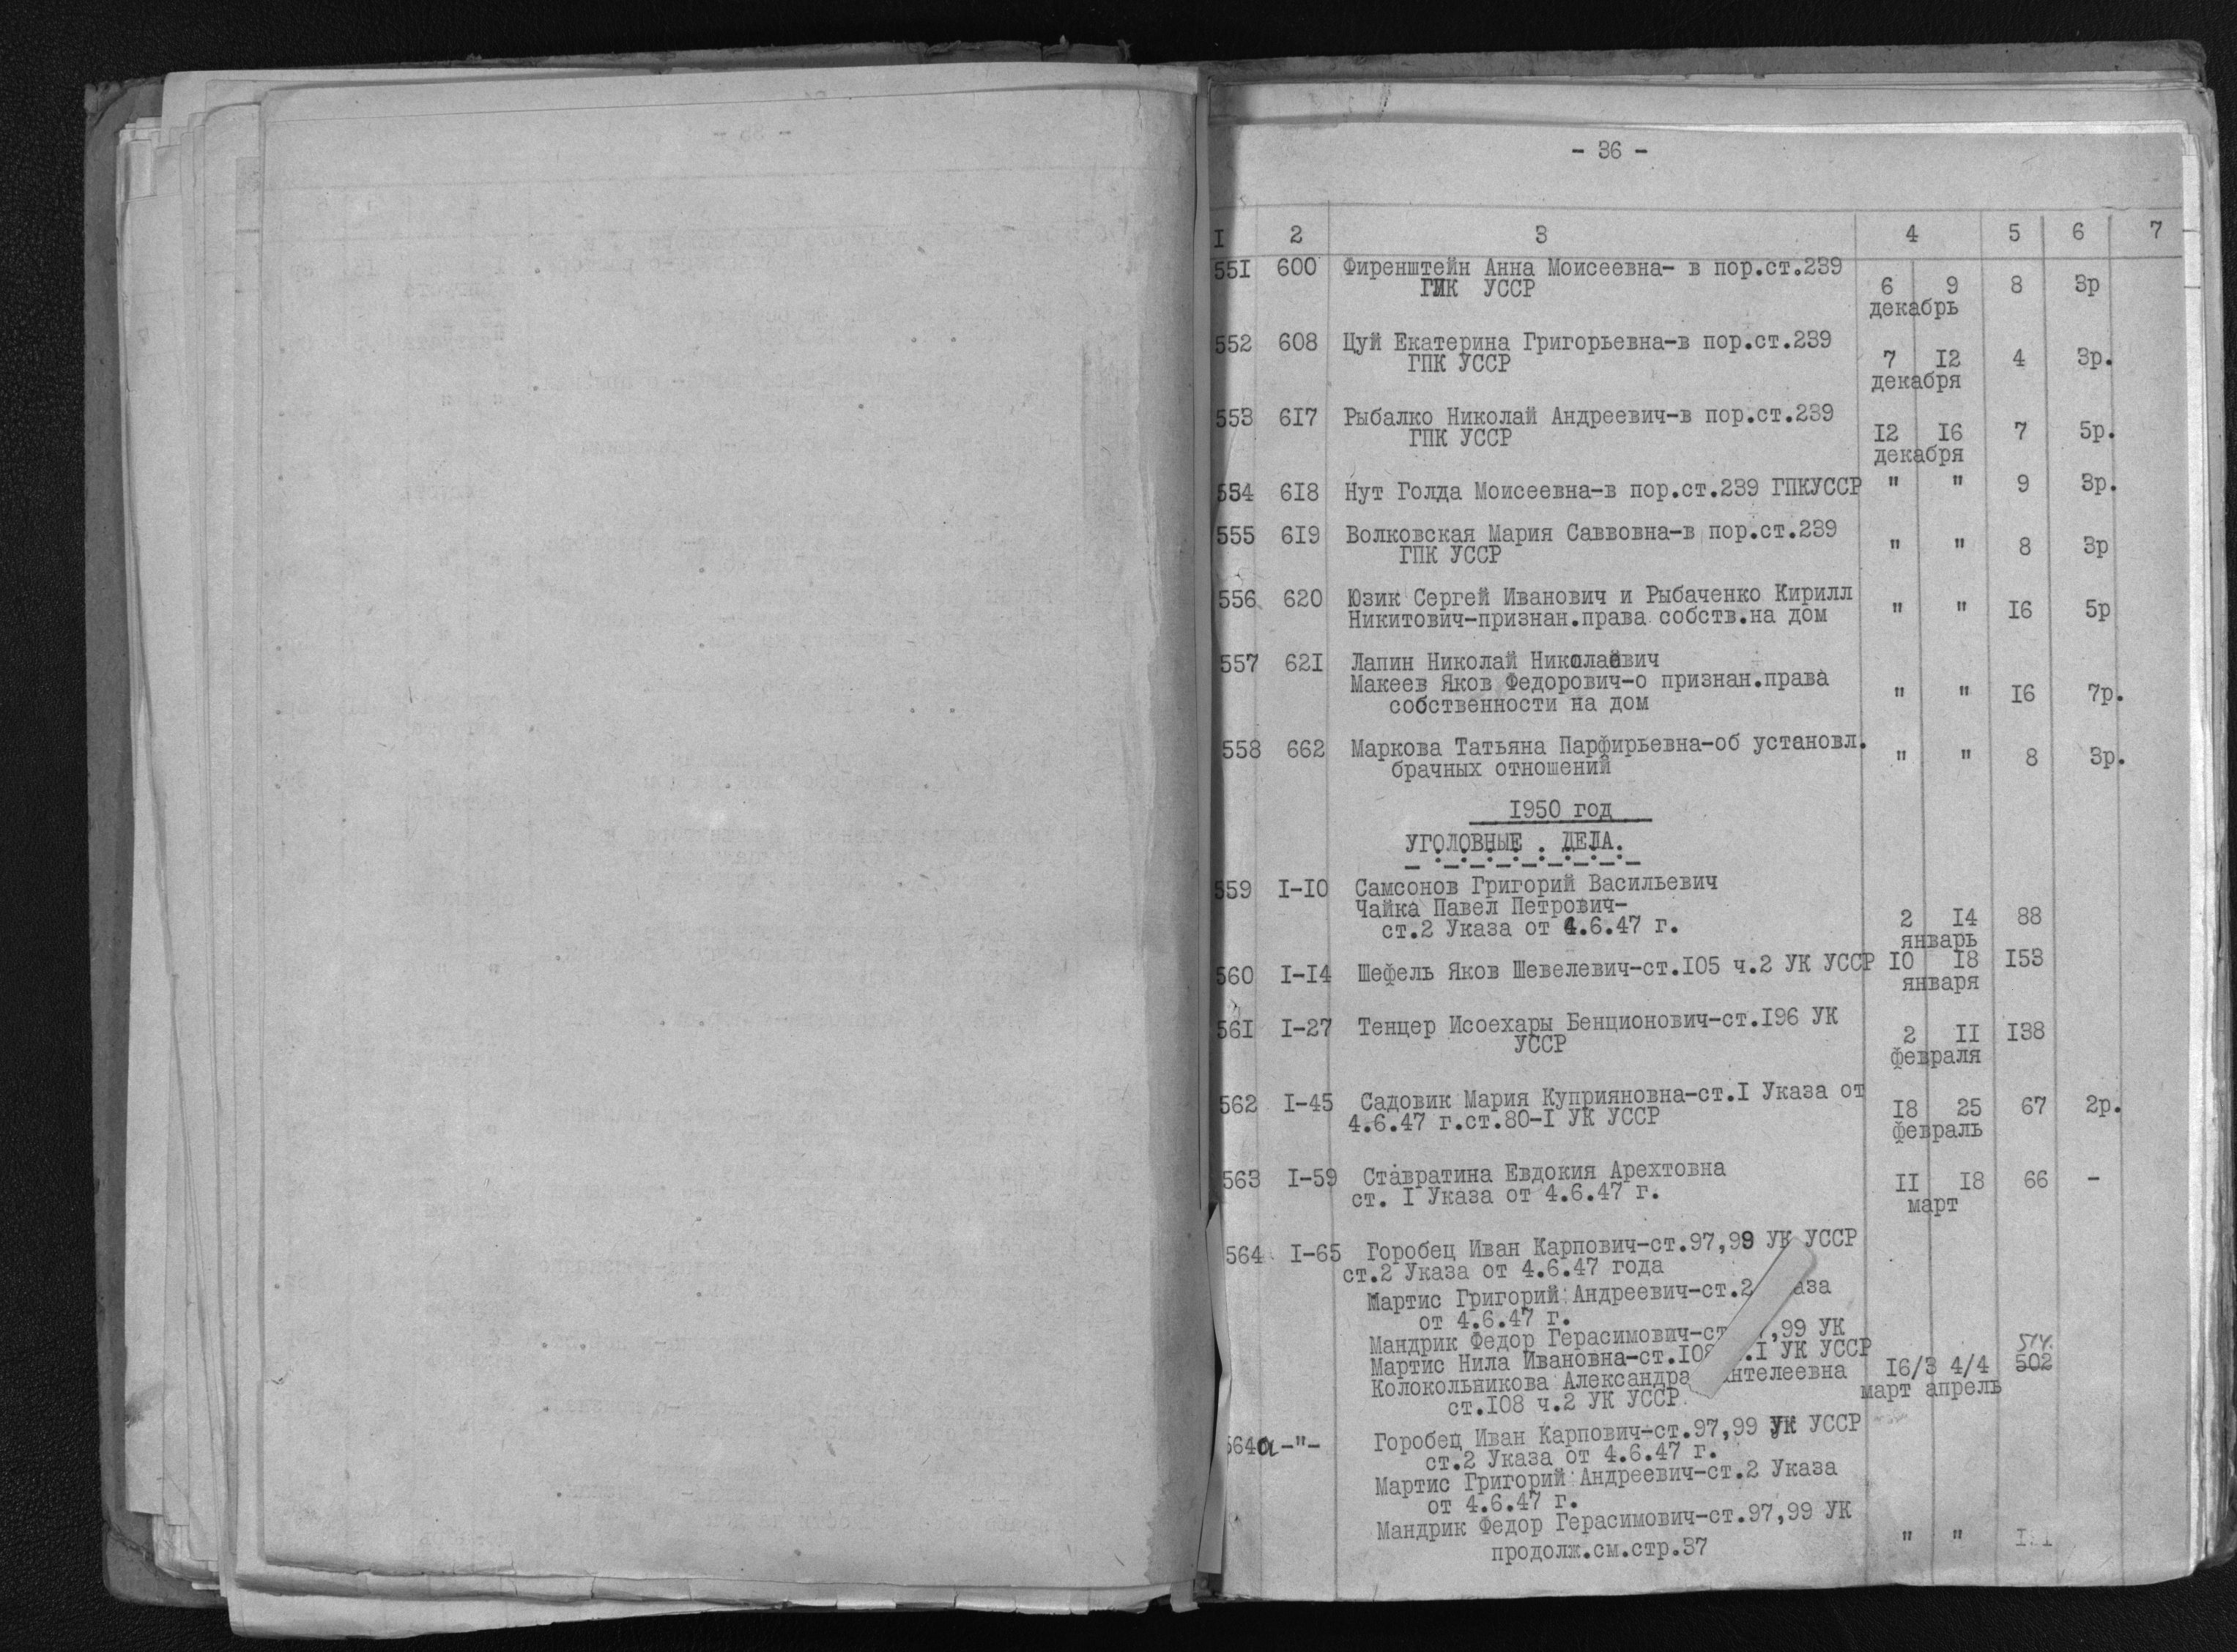 - 36 -
I 2 3 4 5 6 7
551 600 Фиренштейн Анна Моисеевна- в пор.ст.239
ГПК УССР 6 9 8 3р
декабрь
552 608 Цуй Екатерина Григорьевна-в пор.ст.239
ГПК УССР 7 I2 4 3р.
декабря
553 6I7 Рыбалко Николай Андреевич-в пор.ст.239
ГПК УССР I2 I6 7 5р.
декабря
554 6I8 Нут Голда Моисеевна-в пор.ст.239 ГПКУССР " " 9 3р.
555 6I9 Волковская Мария Саввовна-в пор.ст.239
ГПК УССР " " 8 3р
556 620 Юзик Сергей Иванович и Рыбаченко Кирилл
Никитович-признан.права собств.на дом " " I6 5р
557 62I Лапин Николай Николаевич
Макеев Яков Федорович-о признан.права
собственности на дом " " I6 7р.
558 662 Маркова Татьяна Парфирьевна-об установл.
брачных отношений " " 8 3р.
I950 год
УГОЛОВНЫЕ . ДЕЛА.
559 I-I0 Самсонов Григорий Васильевич
Чайка Павел Петрович-
ст.2 Указа от 4.6.47 г. 2 I4 88
январь
560 I-I4 Шефель Яков Шевелевич-ст.I05 ч.2 УК УССР I0 I8 I53
января
56I I-27 Тенцер Исоехары Бенционович-ст.I96 УК
УССР 2 II I38
февраля
562 I-45 Садовик Мария Куприяновна-ст.I Указа от
4.6.47 г.ст.80-I УК УССР I8 25 67 2р.
февраль
563 I-59 Ставратина Евдокия Арехтовна
ст. I Указа от 4.6.47 г. II I8 66 -
март
564 I-65 Горобец Иван Карпович-ст.97,99 УК УССР
ст.2 Указа от 4.6.47 года
Мартис Григорий Андреевич-ст.2
от 4.6.47 г.
Мандрик Федор Герасимович-ст ,99 УК
Мартис Нила Ивановна-ст.I08 .I УК УССР 514.
Колокольникова Александра I6/3 4/4 502
ст.I08 ч.2 УК УССР март апрель
564а -"- Горобец Иван Карпович-ст.97,99 УК УССР
ст.2 Указа от 4.6.47 г.
Мартис Григорий Андреевич-ст.2 Указа
от 4.6.47 г.
Мандрик Федор Герасимович-ст.97,99 УК
продолж.см.стр.37 " "